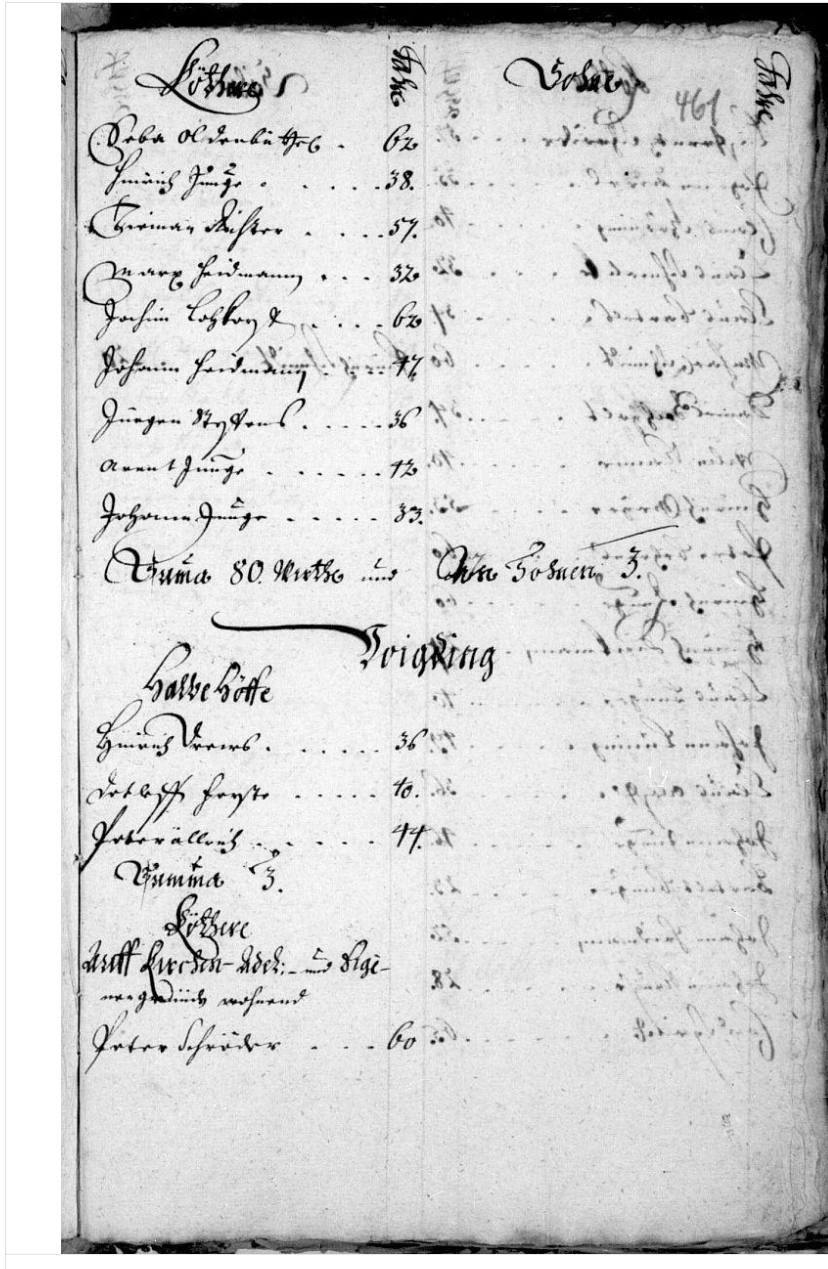 Köthere Jahre Söhne Jahre
461
Seba Oldenbüttel . 62
Hinrich Junge . . . . . 38.
Herman Richter . . . . 57.
Marx Heidmann . . . 32
Jochim . . . . 62
Johann Heidmann . . . 47.
Jürgen Steffens . . . . . 36
Arent Junge . . . . . . 42
Johann Junge . . . . . 33.
Suma 80. Wirthe und Söhnen 3.
Halbe Höffe
Hinrich Drews . . . . . . 36
Detleff . . . . . 40.
Peter . . . . . 44.
Summa 3.
Köthere
Auff Kirchen- Adel: und Eige-
wohnend
Peter Schröder . . . . 60